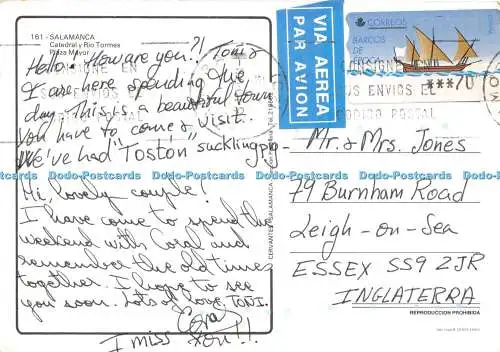 161 - SALAMANCA
Catedral y Rio Tormes
Plaza Mayor
Hello. How are you?! Toni &
I are here spending the
day. This is a beautiful town
you have to come & visit.
We've had "Toston" suckling pig
Hi, lovely couple!
I have come to spend the
weekend with Coral and
remember the old times
together. I hope to see
you soon. Lots of love, TONI.
Coral
I miss You!!
VIA AEREA
PAR AVION
CORREOS
BARCOS DE
EPOCA
***70
US ENVIOS E
CODIGO POSTAL
Mr. & Mrs. Jones
79 Burnham Road
Leigh-on-Sea
ESSEX SS9 2JR
INGLATERRA
REPRODUCCION PROHIBIDA
Dodo-Postcards Dodo-Postcards Dodo-Postcards